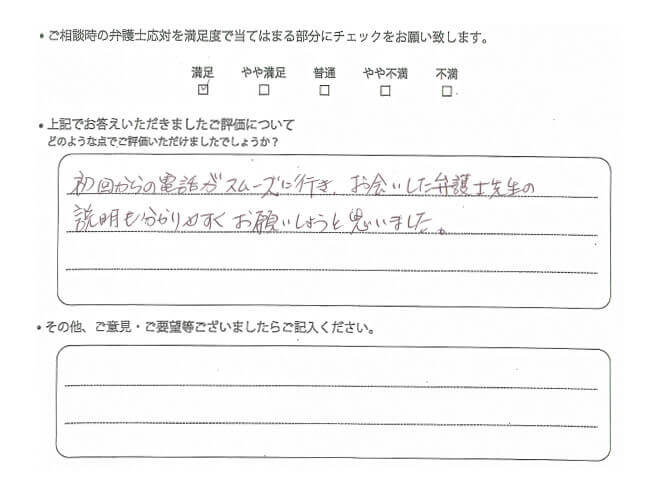 • ご相談時の弁護士応対を満足度で当てはまる部分にチェックをお願い致します。
満足 やや満足 普通 やや不満 不満
☑ □ □ □ □
• 上記でお答えいただきましたご評価について
どのような点でご評価いただけましたでしょうか？
初回からの電話がスムーズに行き、お会いした弁護士先生の
説明も分かりやすくお願いしようと思いました。
• その他、ご意見・ご要望等ございましたらご記入ください。